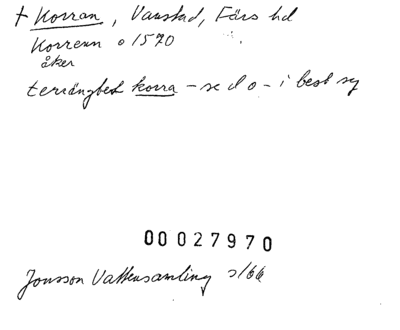 † Korran, Vanstad, Färs hd
Korrenn o 1570
åker
terrängbet korra - se d o - i best sg
00 027970
Jonsson Vattensamling s/66